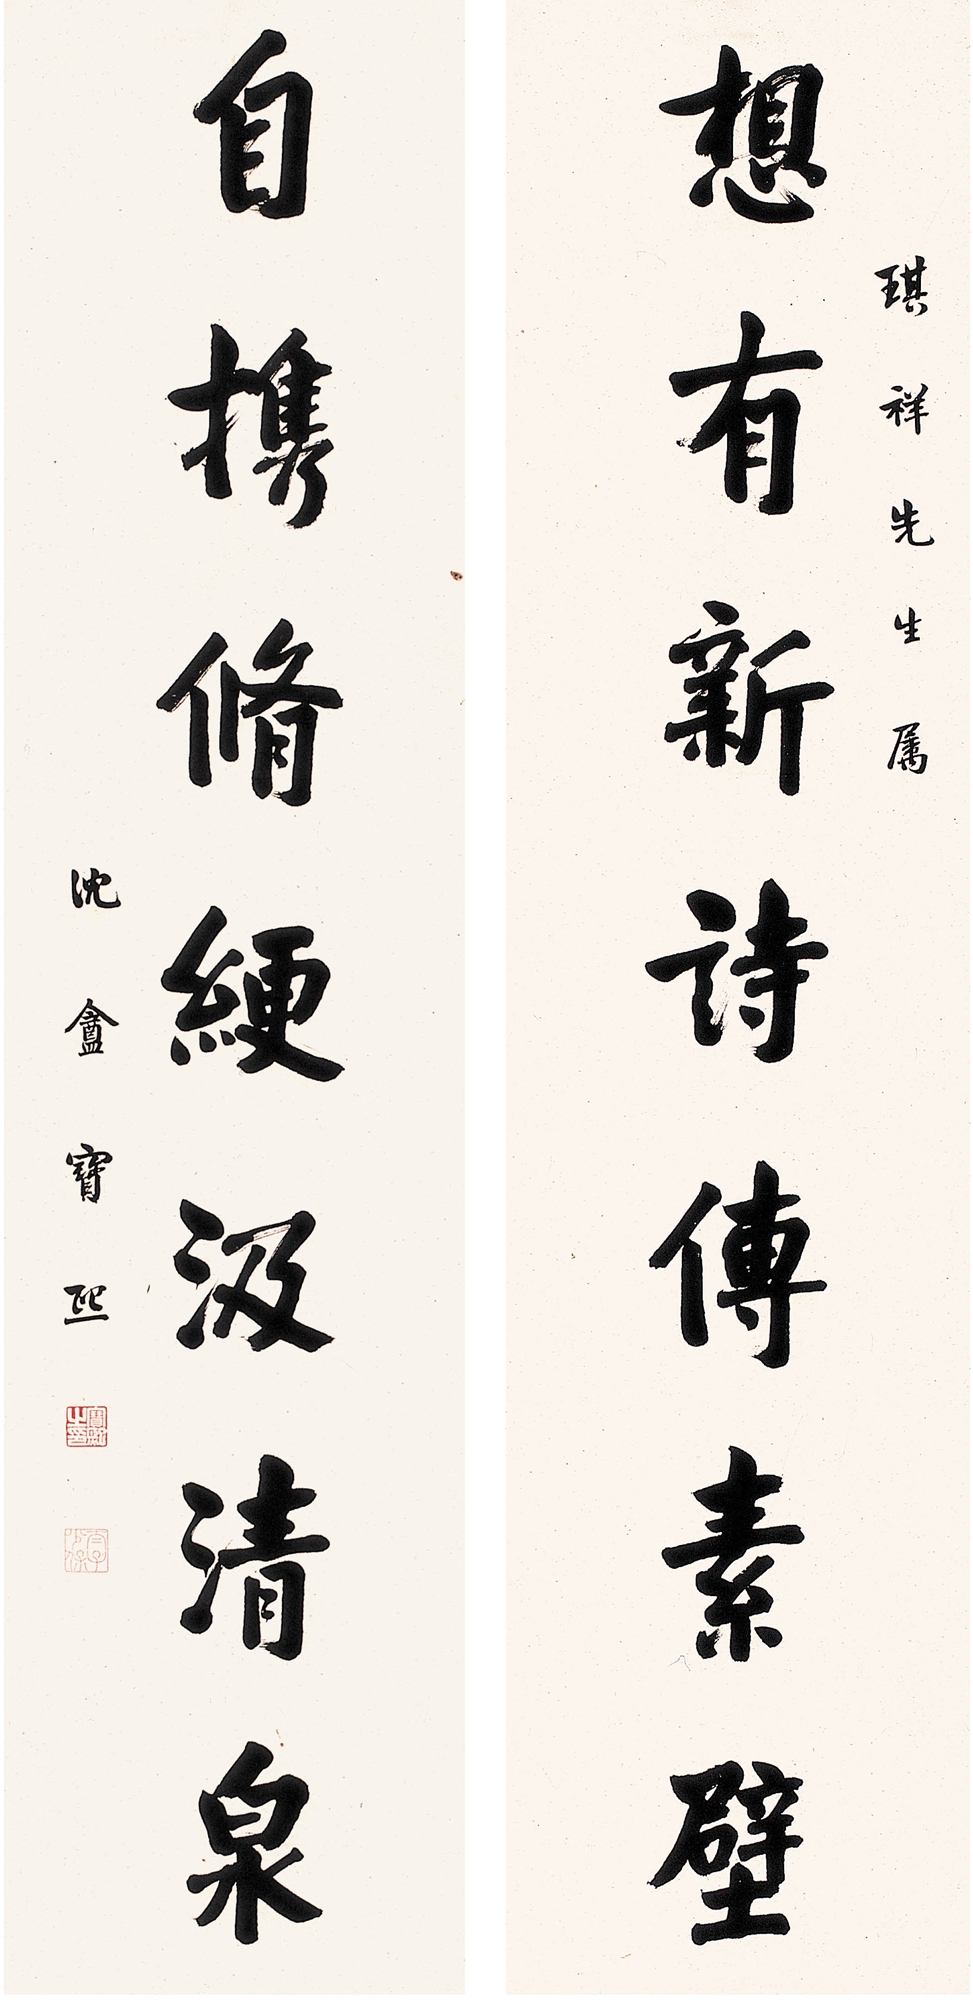 琪祥先生属
想有新詩傳素壁
自携脩綆汲清泉
沈盦寶熙
寶熙之印